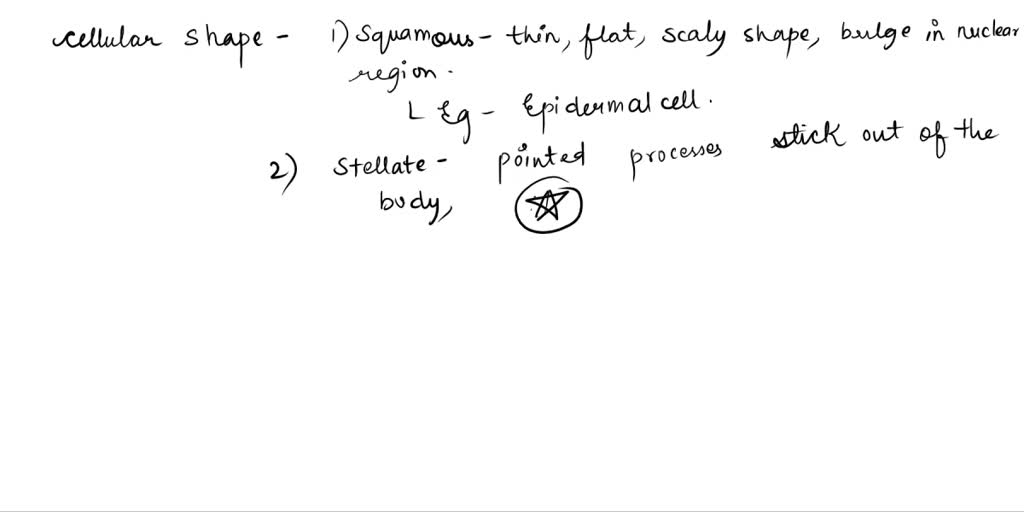 cellular shape - 1) Squamous - thin, flat, scaly shape, bulge in nuclear
region.
L Eg - Epidermal cell.
2) Stellate - pointed processes stick out of the
body,